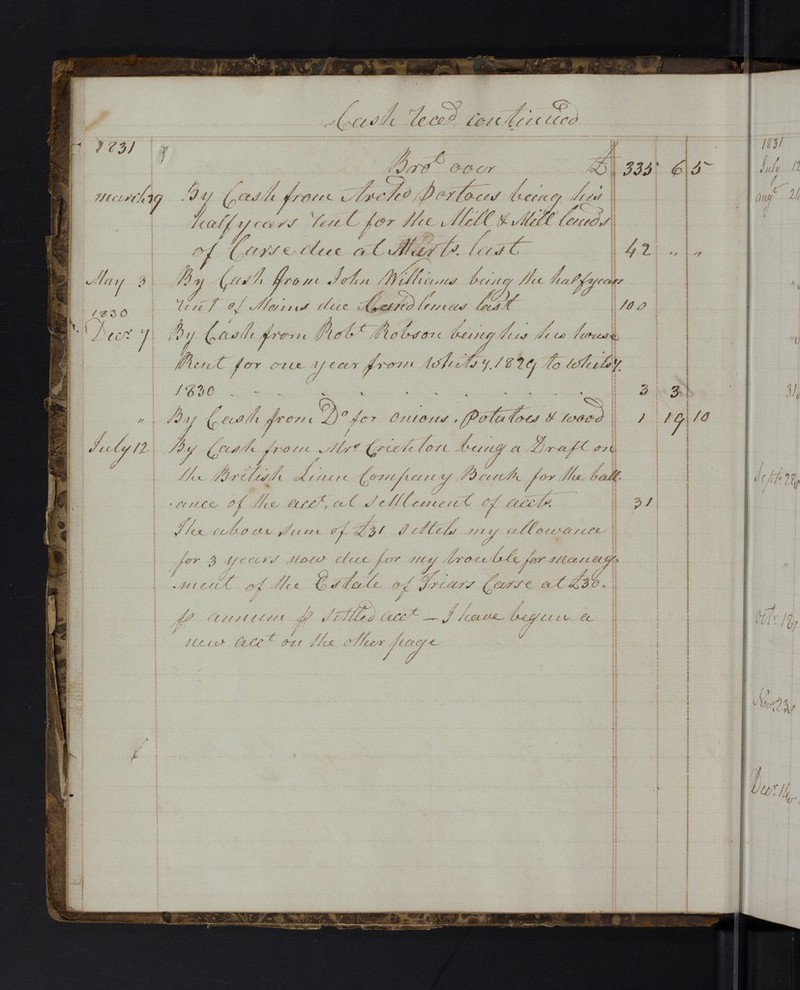 Cash Recd continued
1831
Brot over £ 335 6 5
March 19 By Cash from Archd Porteus being his
halfyears rent for the Mill & Mill lands
of Carse due at Marts. last 42 " "
May 3 By Cash from John Williams being the halfyears
rent of Mains due Candlemas last 100
1830
Decr 7 By Cash from Robt Robson being his his house
Rent for one year from Whitsy. 1829 to Whitsy.
1830 - - - 3 3
" By Cash from Do for onions, Potatoes & wood 1 19 10
July 12 By Cash from Mrs Crichton being a Draft on
the British Linen Company Bank for the ball-
-ance of the acct, at settlement of accts. 31
The above sum of £31 settels my allowance
for 3 years now due for my trouble for manag-
-ment of the Estate of Friars Carse at £30.
⅌ annum ⅌ settled acct — I have begun a
new acct on the other page
1831
July 12
augt
31
Septr 28
Octr 18
Novr 23
Decr